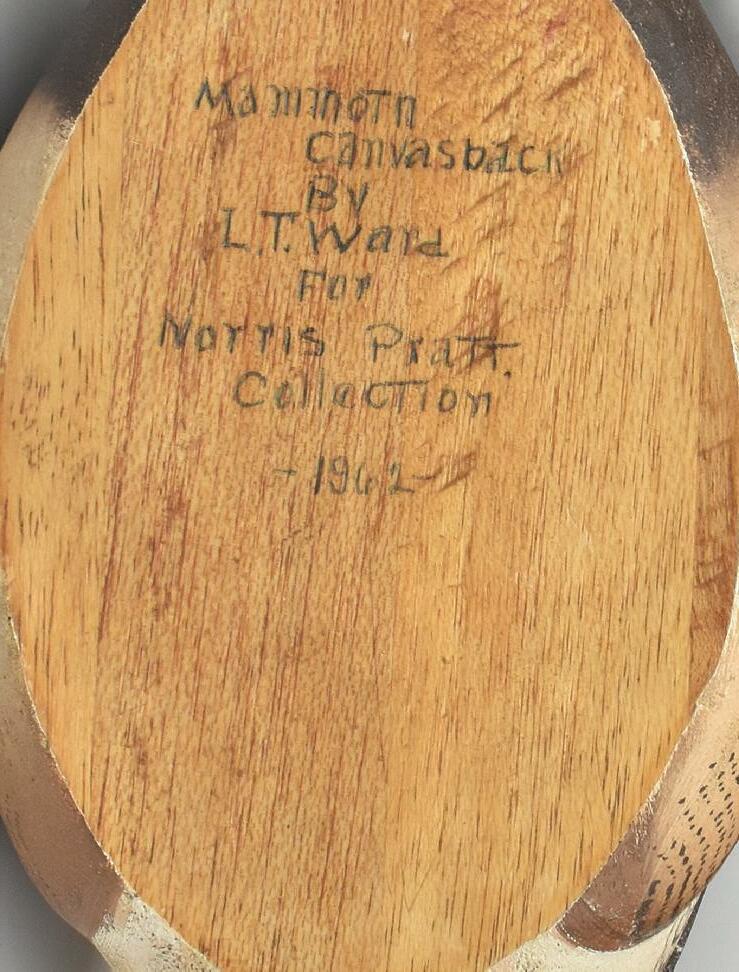 Mammoth
Canvasback
By
L.T. Ward
For
Norris Pratt.
Collection
-1962-